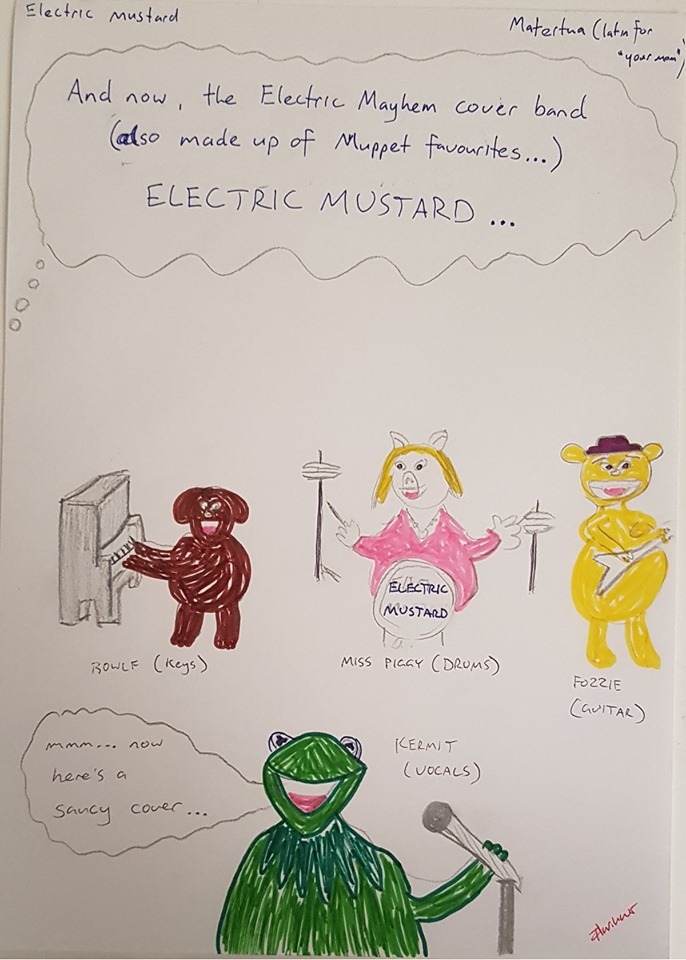 Electric Mustard
Matertua (latin for
"your mom")
And now, the Electric Mayhem cover band
(also made up of Muppet favourites...)
ELECTRIC MUSTARD ...
ELECTRIC
MUSTARD
ROWLF (Keys)
MISS PIGGY (DRUMS)
FOZZIE
(GUITAR)
mmm... now
here's a
saucy cover...
KERMIT
(VOCALS)